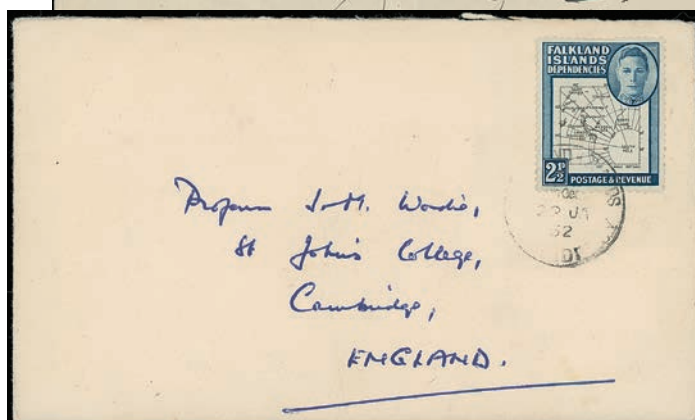 FALKLAND
ISLANDS
DEPENDENCIES
2½P POSTAGE & REVENUE
52
Professor J. M. Wordie,
St John's College,
Cambridge,
ENGLAND.